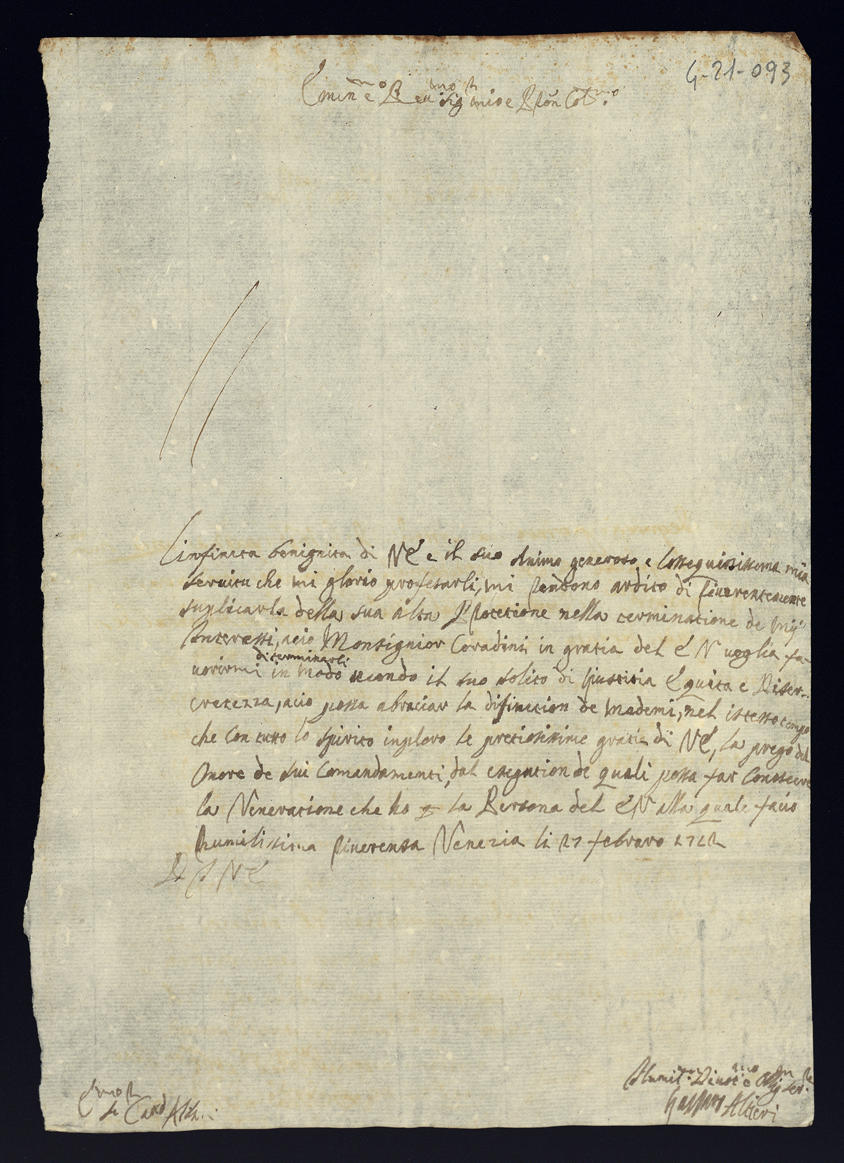 G-21-093
Emin.mo e Reu.mo Sig. mio e Pron Col.mo
L'infinita benignita di VE e il suo Animo generoso, e l'ossequiosissema mia
seruitu che mi glorio profesarli, mi rendono ardito di riuerentemente
suplicarla della sua alta Protetione nella terminatione de mij
Interessi, acio Monsignior Coradini in gratia del E V uoglia fa-
uorirmi in modo secondo il suo solito di Giustitia Equita e Discre-
diterminarli
cretezza, acio possa abraciar la difinition de medemi, nel istesso tempo
che con tutto lo spirito inploro le pretiosissime gratie di VE, la prego del
Onore de sui Comandamenti, dal esegution de quali possa far Conoscere
la Veneratione che ho p la Persona del EV alla quale facio
humilissima riuerenza Venezia li 27 febraro 1712
D V E
E.mo S.r Card Alth.
Humil.mo Diuot.mo e Oblig. ser.
Gasparo Altieri